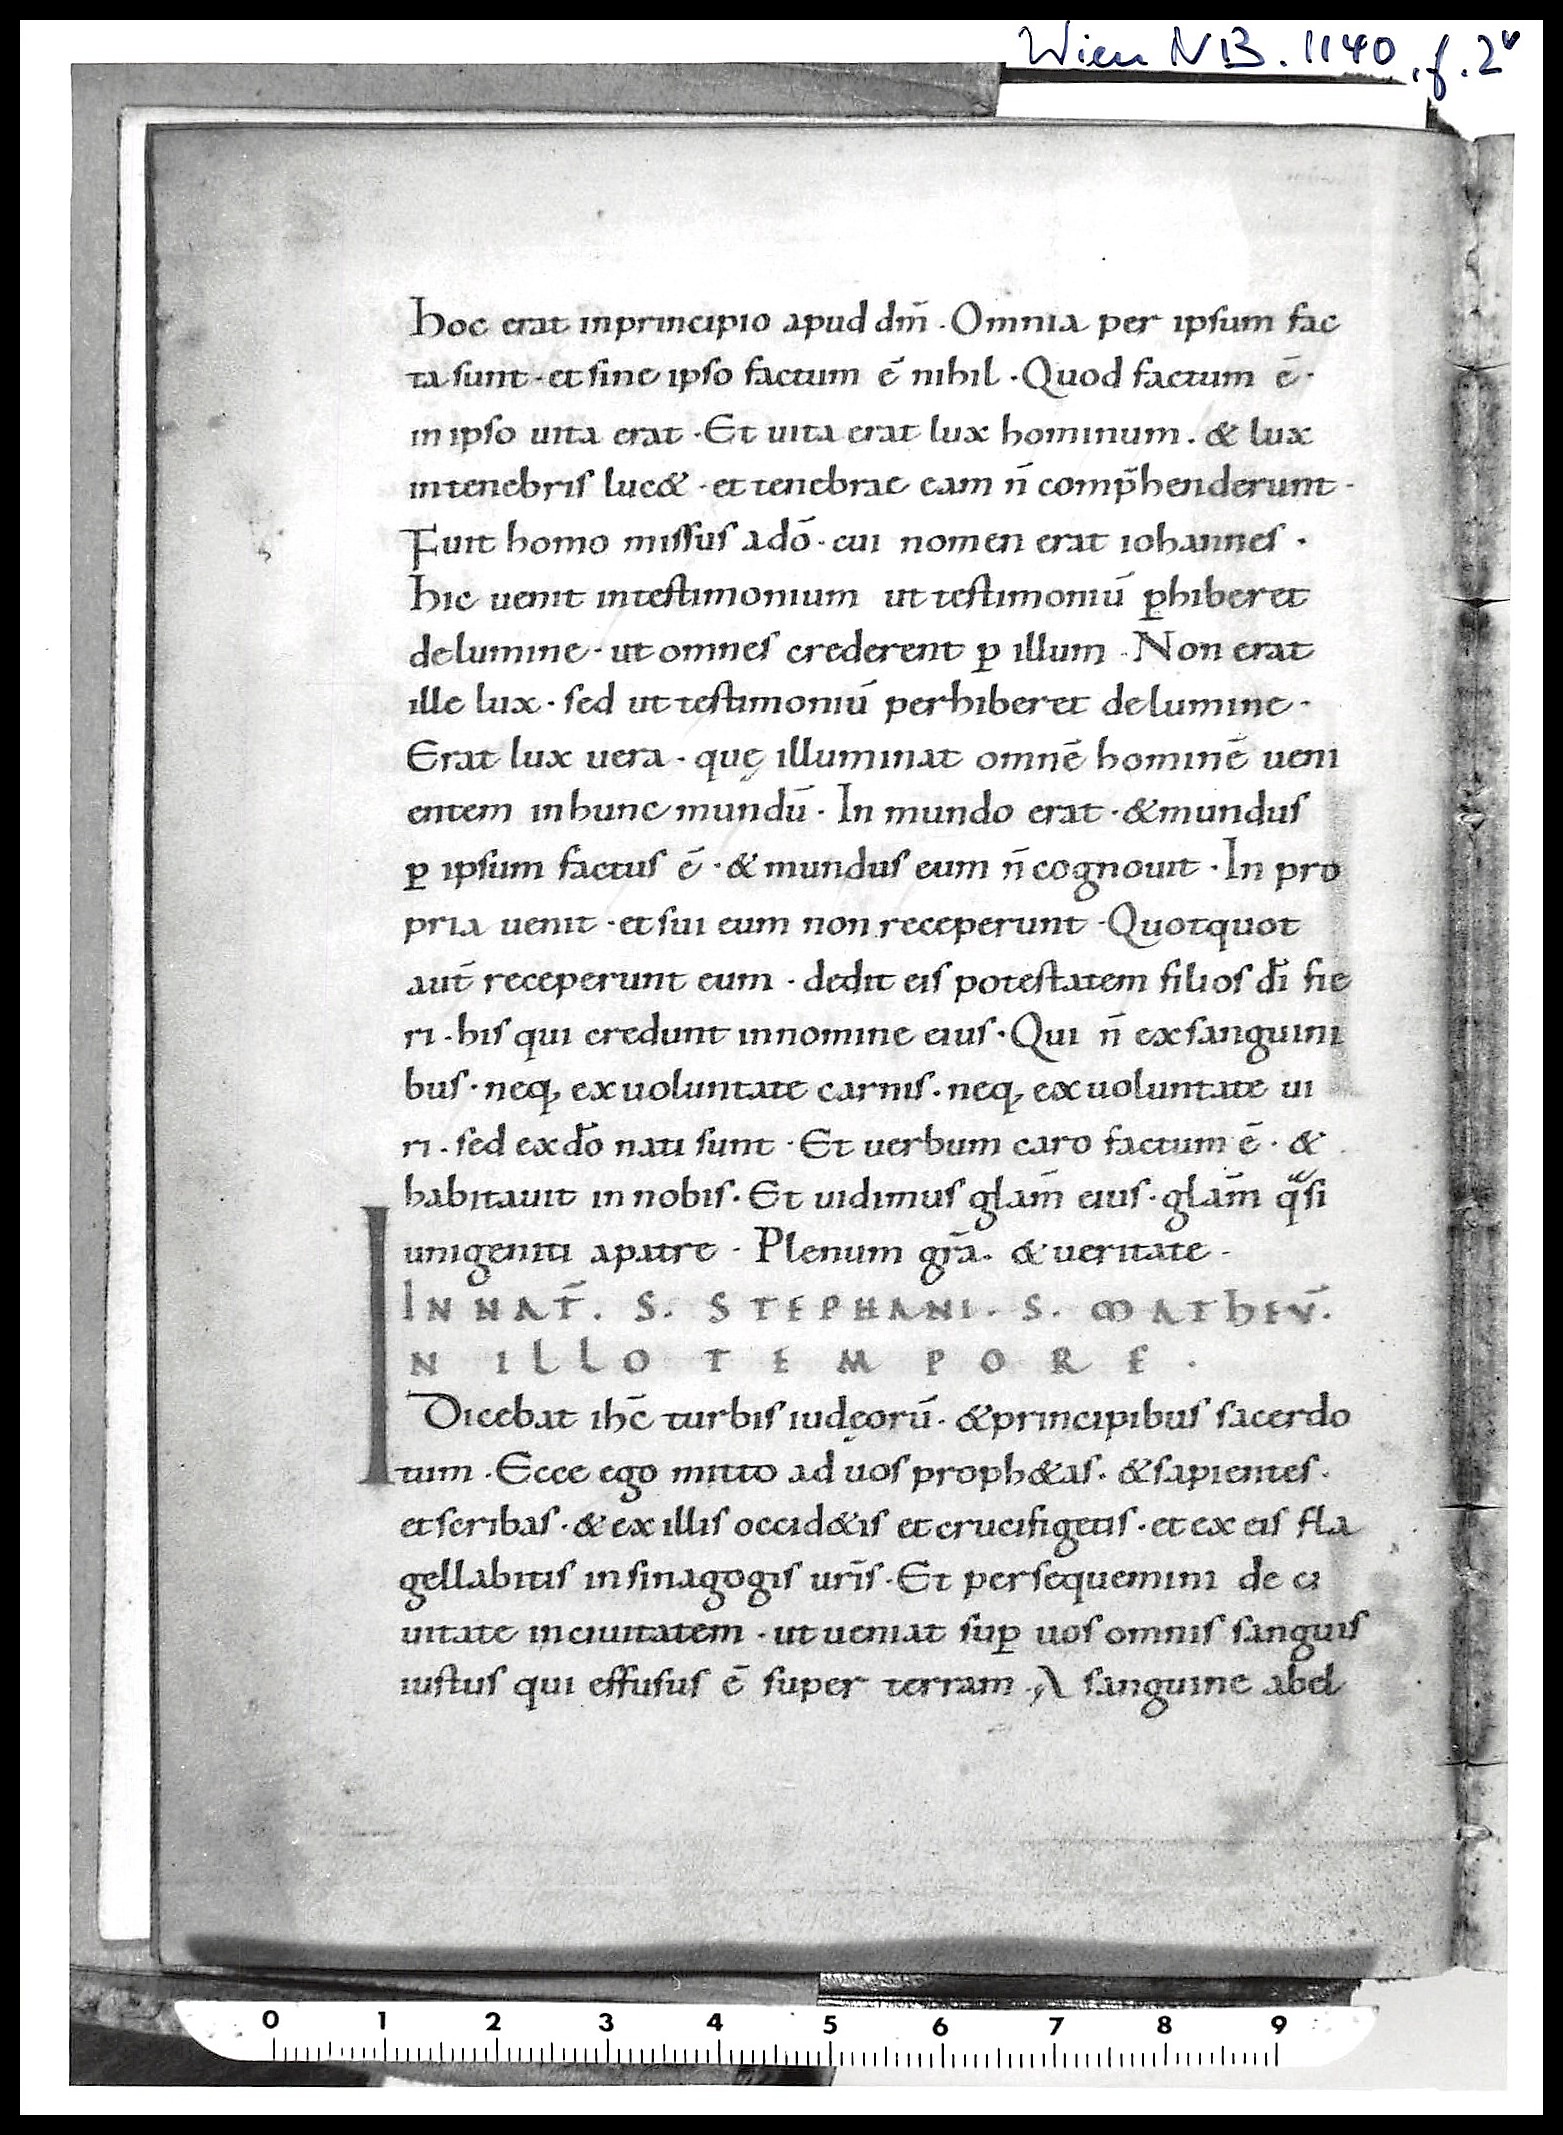 Wien NB. 1140, f. 2v
hoc erat inprincipio apud dm̄ · Omnia per ipsum fac
ta sunt · et sine ipso factum ē nihil · Quod factum ē ·
in ipso uita erat · Et uita erat lux hominum . & lux
intenebris luc& · et tenebrae eam n̄ comp̄henderunt ·
Fuit homo missus adō · cui nomen erat iohannes ·
hic uenit intestimonium ut testimoniū ꝑhiberet
delumine · ut omnes crederent ꝑ illum · Non erat
ille lux · sed ut testimoniū perhiberet delumine ·
Erat lux uera · quę illuminat omnē hominē ueni
entem inhunc mundū · In mundo erat · & mundus
ꝑ ipsum factus ē · & mundus eum n̄ cognouit · In pro
pria uenit · et sui eum non receperunt · Quotquot
aut̄ receperunt eum · dedit eis potestatem filios dī fie
ri · his qui credunt innomine eius · Qui n̄ exsanguini
bus · neq, exuoluntate carnis · neq, exuoluntate ui
ri · sed exdō nati sunt · Et uerbum caro factum ē · &
habitauit innobis · Et uidimus glam̄ eius · glam̄ qᵃsi
unigeniti apatre · Plenum gr̄a · & ueritate ·
IN NAT̄ . S . STEPHANI . S . MATHEV̄ .
IN ILLO TEMPORE .
Dicebat ihc̄ turbis iudęorū · & principibus sacerdo
tum · Ecce ego mitto ad uos proph&as · & sapientes ·
et scribas · & ex illis occid&is et crucifigetis · et ex eis fla
gellabitis insinagogis ur̄is · Et persequemini de ci
uitate inciuitatem · ut ueniat suꝑ uos omnis sanguis
iustus qui effusus ē super terram · A sanguine abel
0 1 2 3 4 5 6 7 8 9